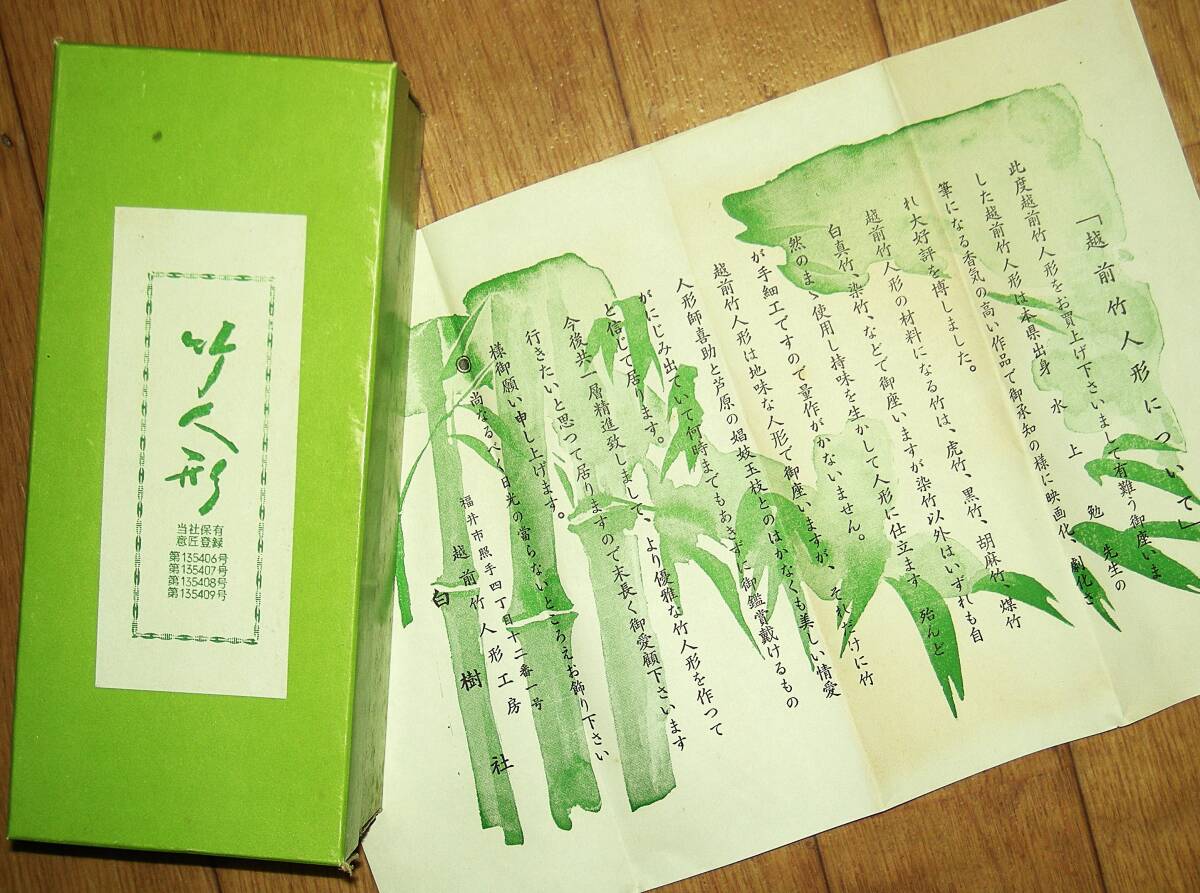 竹人形
当社保有
意匠登録
第135406号
第135407号
第135408号
第135409号
「越前竹人形について」
此度越前竹人形をお買上げ下さいまして有難う御座いま
した越前竹人形は本県出身 水上 勉 先生の
筆になる香気の高い作品で御承知の様に映画化、劇化さ
れ大好評を博しました。
越前竹人形の材料になる竹は、虎竹、黒竹、胡麻竹、煤竹
白真竹、染竹、などで御座いますが染竹以外はいずれも自
然のまゝ使用し持味を生かして人形に仕立ます 殆んど
が手細工ですので量作がかないません。
越前竹人形は地味な人形で御座いますが、それだけに竹
人形師喜助と芦原の娼妓玉枝とのはかなくも美しい情愛
がにじみ出ていて何時までもあきずに御鑑賞戴けるもの
と信じて居ります。
今後共一層精進致しまして、より優雅な竹人形を作つて
行きたいと思つて居りますので末長く御愛顧下さいます
様御願い申し上げます。
尚なるべく日光の當らないところえお飾り下さい
福井市照手四丁目十二番一号
越前竹人形工房
白樹社